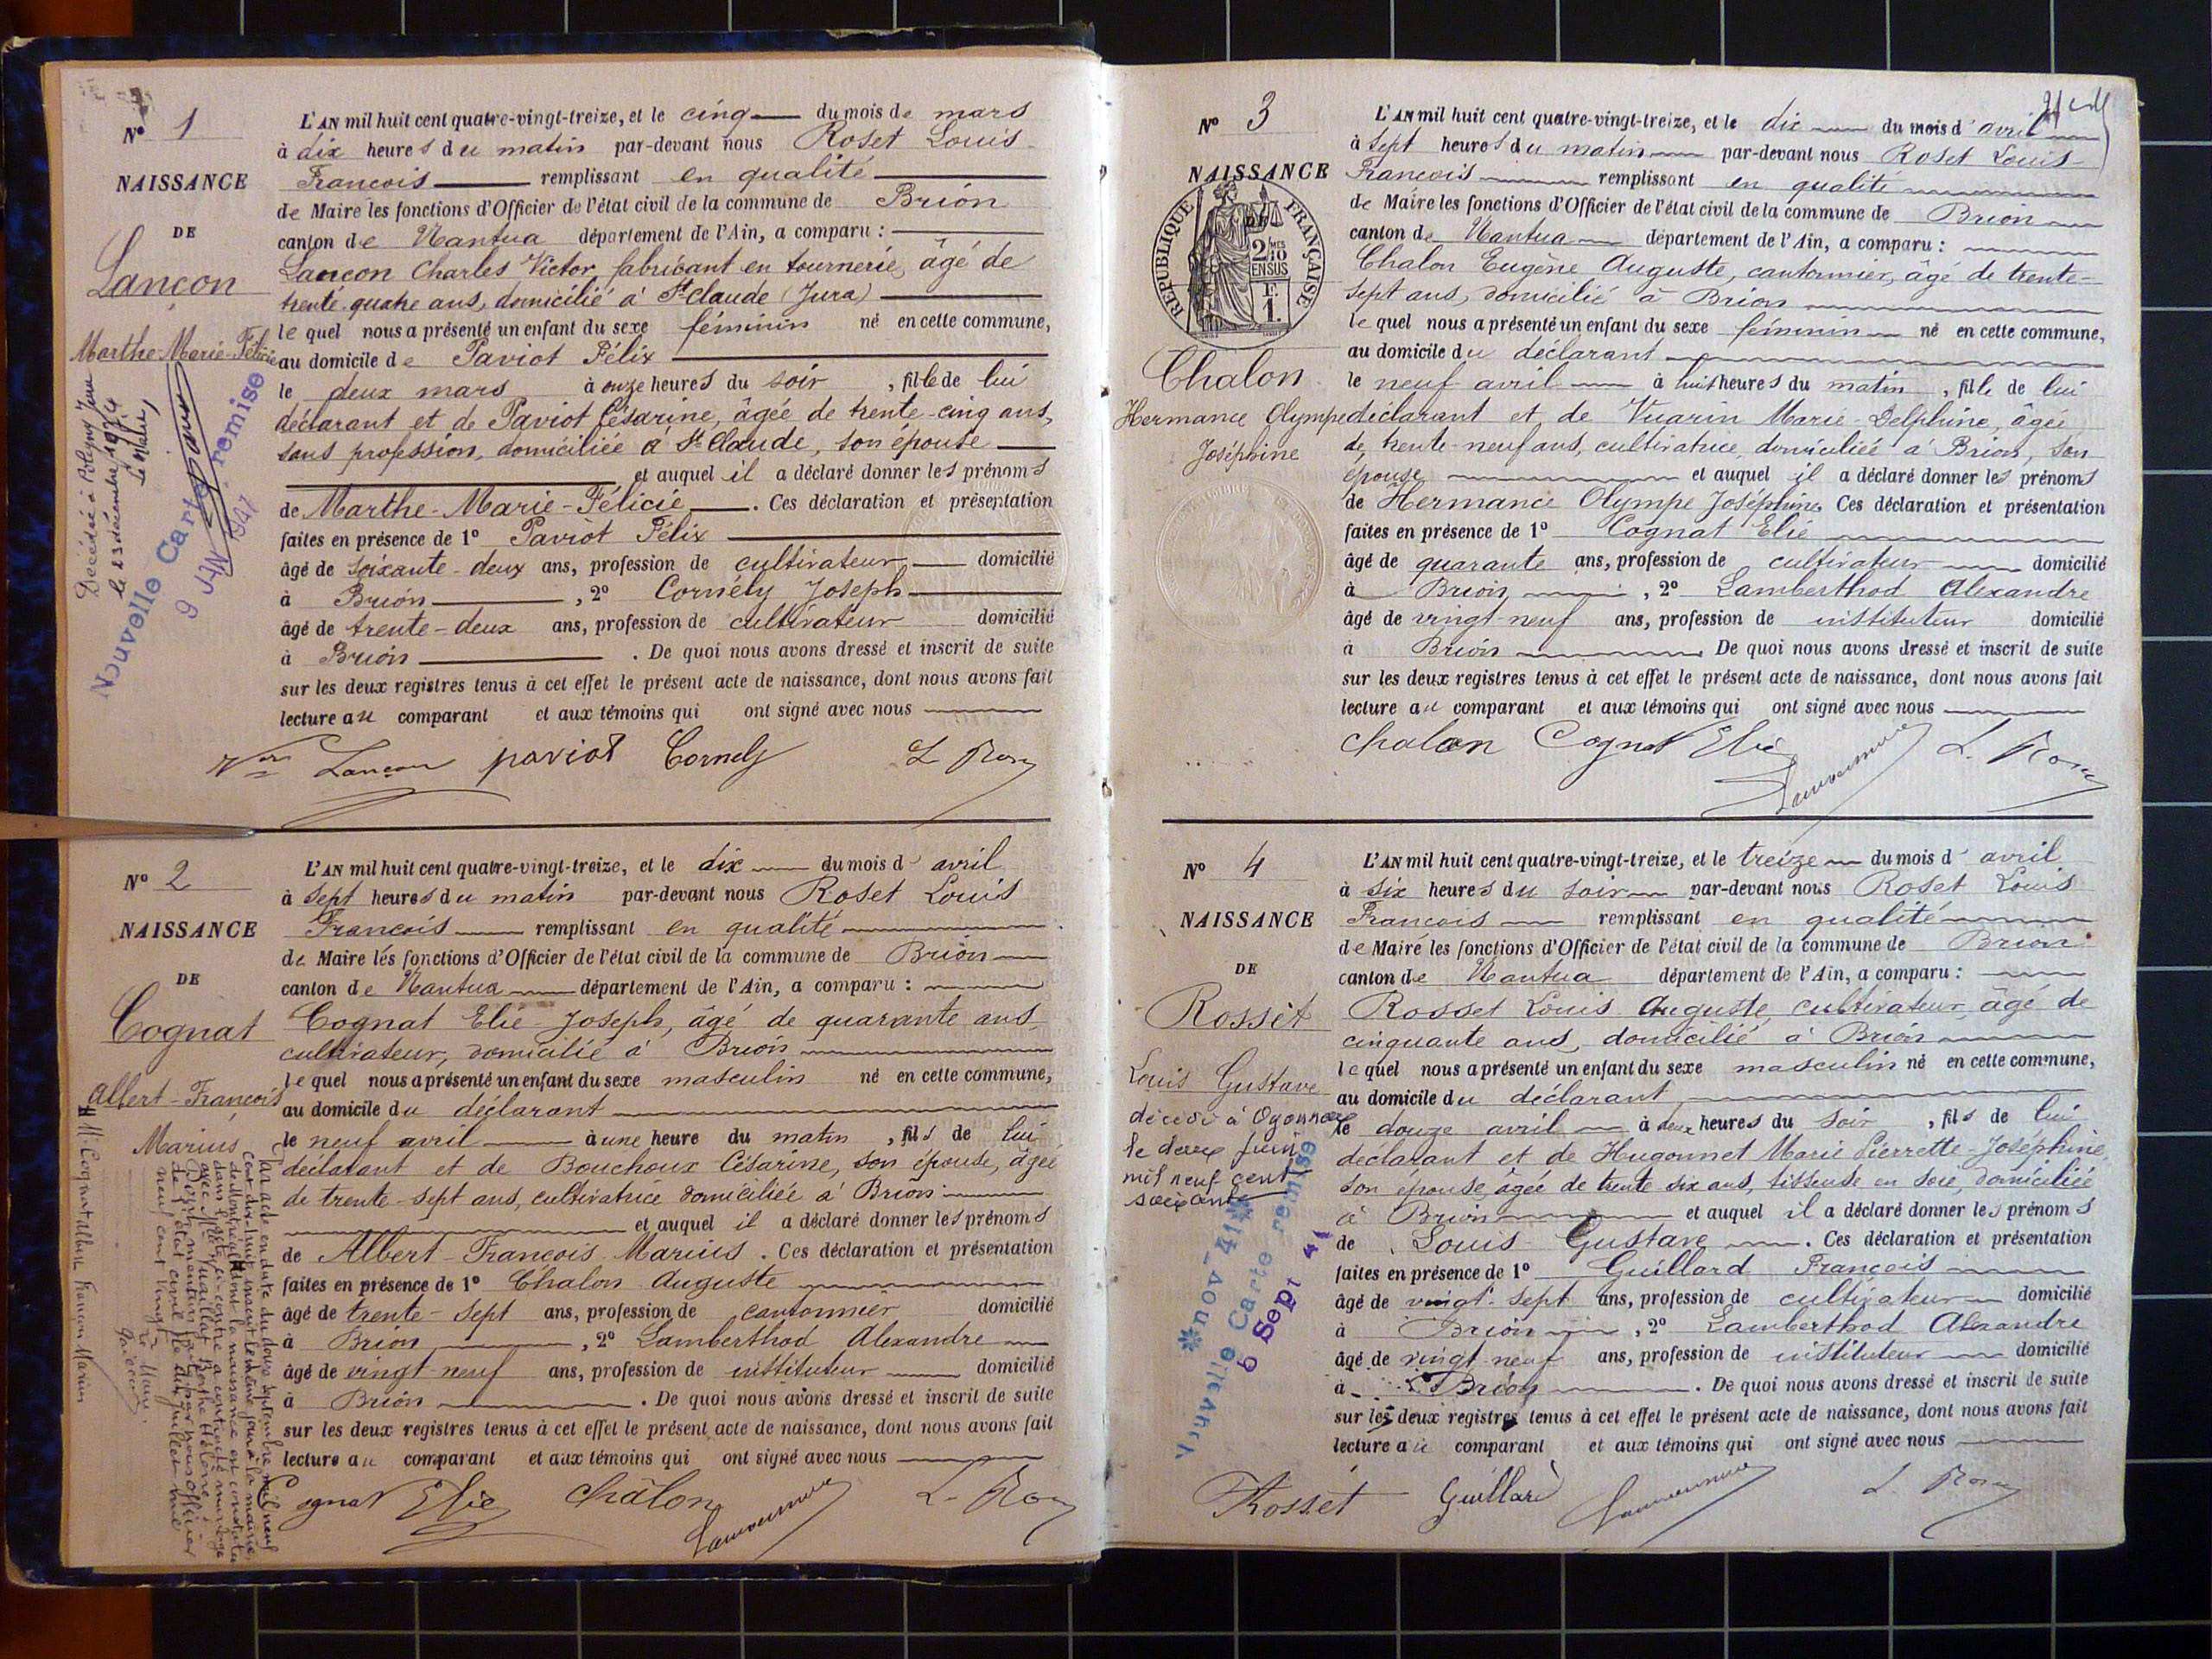 N° 1
NAISSANCE
DE
Lançon
Marthe-Marie-Félicie
Décédée à Poligny Jura
le 23 décembre 1974
Le Maire,
Nouvelle Carte remise
L'AN mil huit cent quatre-vingt-treize, et le cinq du mois de mars
à dix heures du matin par-devant nous Roset Louis
François remplissant en qualité
de Maire les fonctions d'Officier de l'état civil de la commune de Brion
canton de Nantua département de l'Ain, a comparu :
Lançon Charles Victor, fabricant en tournerie, âgé de
trente-quatre ans, domicilié à St Claude (Jura)
lequel nous a présenté un enfant du sexe féminin né en cette commune,
au domicile de Paviot Félix
le deux mars à onze heures du soir, fille de lui
déclarant et de Paviot Césarine, âgée de trente-cinq ans,
sans profession, domiciliée à St Claude, son épouse
et auquel il a déclaré donner les prénoms
de Marthe-Marie-Félicie. Ces déclaration et présentation
faites en présence de 1° Paviot Félix
âgé de soixante-deux ans, profession de cultivateur domicilié
à Brion, 2° Cornély Joseph
âgé de trente-deux ans, profession de cultivateur domicilié
à Brion. De quoi nous avons dressé et inscrit de suite
sur les deux registres tenus à cet effet le présent acte de naissance, dont nous avons fait
lecture au comparant et aux témoins qui ont signé avec nous
Lançon paviot Cornély L. Roset
N° 2
NAISSANCE
DE
Cognat
Albert-François
Marius
L'AN mil huit cent quatre-vingt-treize, et le dix du mois d'avril
à sept heures du matin par-devant nous Roset Louis
François remplissant en qualité
de Maire les fonctions d'Officier de l'état civil de la commune de Brion
canton de Nantua département de l'Ain, a comparu :
Cognat Elie-Joseph, âgé de quarante ans,
cultivateur, domicilié à Brion
lequel nous a présenté un enfant du sexe masculin né en cette commune,
au domicile du déclarant
le neuf avril à une heure du matin, fils de lui
déclarant et de Bouchoux Césarine, son épouse, âgée
de trente-sept ans, cultivatrice domiciliée à Brion
et auquel il a déclaré donner les prénoms
de Albert-François Marius. Ces déclaration et présentation
faites en présence de 1° Chalon Auguste
âgé de trente-sept ans, profession de cantonnier domicilié
à Brion, 2° Lamberthod Alexandre
âgé de vingt-neuf ans, profession de instituteur domicilié
à Brion. De quoi nous avons dressé et inscrit de suite
sur les deux registres tenus à cet effet le présent acte de naissance, dont nous avons fait
lecture au comparant et aux témoins qui ont signé avec nous
Cognat Elie Châlon L. Roset
N° 3
NAISSANCE
REPUBLIQUE FRANÇAISE
2/10 EN SUS
F. 1.
Chalon
Hermance Olympe
Joséphine
L'AN mil huit cent quatre-vingt-treize, et le dix du mois d'avril
à sept heures du matin par-devant nous Roset Louis
François remplissant en qualité
de Maire les fonctions d'Officier de l'état civil de la commune de Brion
canton de Nantua département de l'Ain, a comparu :
Chalon Eugène Auguste, cantonnier, âgé de trente-
sept ans, domicilié à Brion
lequel nous a présenté un enfant du sexe féminin né en cette commune,
au domicile du déclarant
le neuf avril à huit heures du matin, fille de lui
déclarant et de Vuarin Marie-Delphine, âgée
de trente-neuf ans, cultivatrice, domiciliée à Brion, son
épouse et auquel il a déclaré donner les prénoms
de Hermance Olympe Joséphine. Ces déclaration et présentation
faites en présence de 1° Cognat Elie
âgé de quarante ans, profession de cultivateur domicilié
à Brion, 2° Lamberthod Alexandre
âgé de vingt-neuf ans, profession de instituteur domicilié
à Brion. De quoi nous avons dressé et inscrit de suite
sur les deux registres tenus à cet effet le présent acte de naissance, dont nous avons fait
lecture au comparant et aux témoins qui ont signé avec nous
chalon Cognat Elie L. Roset
N° 4
NAISSANCE
DE
Rosset
Louis Gustave
décédé à Oyonnax
le deux juin
mil neuf cent
soixante
Nouvelle Carte remise
6 Sept 41
L'AN mil huit cent quatre-vingt-treize, et le treize du mois d'avril
à six heures du soir par-devant nous Roset Louis
François remplissant en qualité
de Maire les fonctions d'Officier de l'état civil de la commune de Brion
canton de Nantua département de l'Ain, a comparu :
Rosset Louis Auguste, cultivateur, âgé de
cinquante ans, domicilié à Brion
lequel nous a présenté un enfant du sexe masculin né en cette commune,
au domicile du déclarant
le douze avril à deux heures du soir, fils de lui
déclarant et de Hugonnet Marie Pierrette-Joséphine,
son épouse, âgée de trente six ans, tisseuse en soie, domiciliée
à Brion et auquel il a déclaré donner les prénoms
de Louis Gustave. Ces déclaration et présentation
faites en présence de 1° Guillard François
âgé de vingt-sept ans, profession de cultivateur domicilié
à Brion, 2° Lamberthod Alexandre
âgé de vingt-neuf ans, profession de instituteur domicilié
à Brion. De quoi nous avons dressé et inscrit de suite
sur les deux registres tenus à cet effet le présent acte de naissance, dont nous avons fait
lecture au comparant et aux témoins qui ont signé avec nous
Rosset Guillard L. Roset